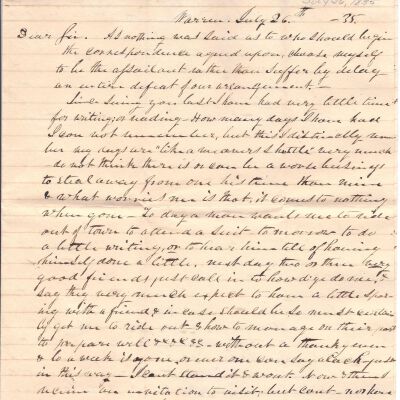 July 26, 1835
Warren July 26th - 35.
Dear Sir. As nothing was said as to who should begin
the correspondence agreed upon, choose myself
to be the assailant rather than suffer by delay
an entire defeat of our arrangement —
Since seing you last I have had very little time
for writing, or reading - How many days I have had
I can not remember, but this I distinctly rem
ber my days are "like a weavers shuttle" very much
do not think there is or can be a worse business
to steal away from one his time than mine
& what worries me is that, it comes to nothing
when gone - To day a man wants me to ride
out of town to attend a suit to morrow to do
a little writing, or to hear him tell of having
himself done a little, next day two or three very
good friends, just call in to how d'ye do me, &
say they very much expect to have a little
ing with a friend & in case should be so must certain
ly get me to ride out & how to manage on their part
to prepare &c &c &c &c - without a thank you even
& so a week is gone, or ever one can say a
in this way - I cant stand it & wont
an invitation to visit, but cant -